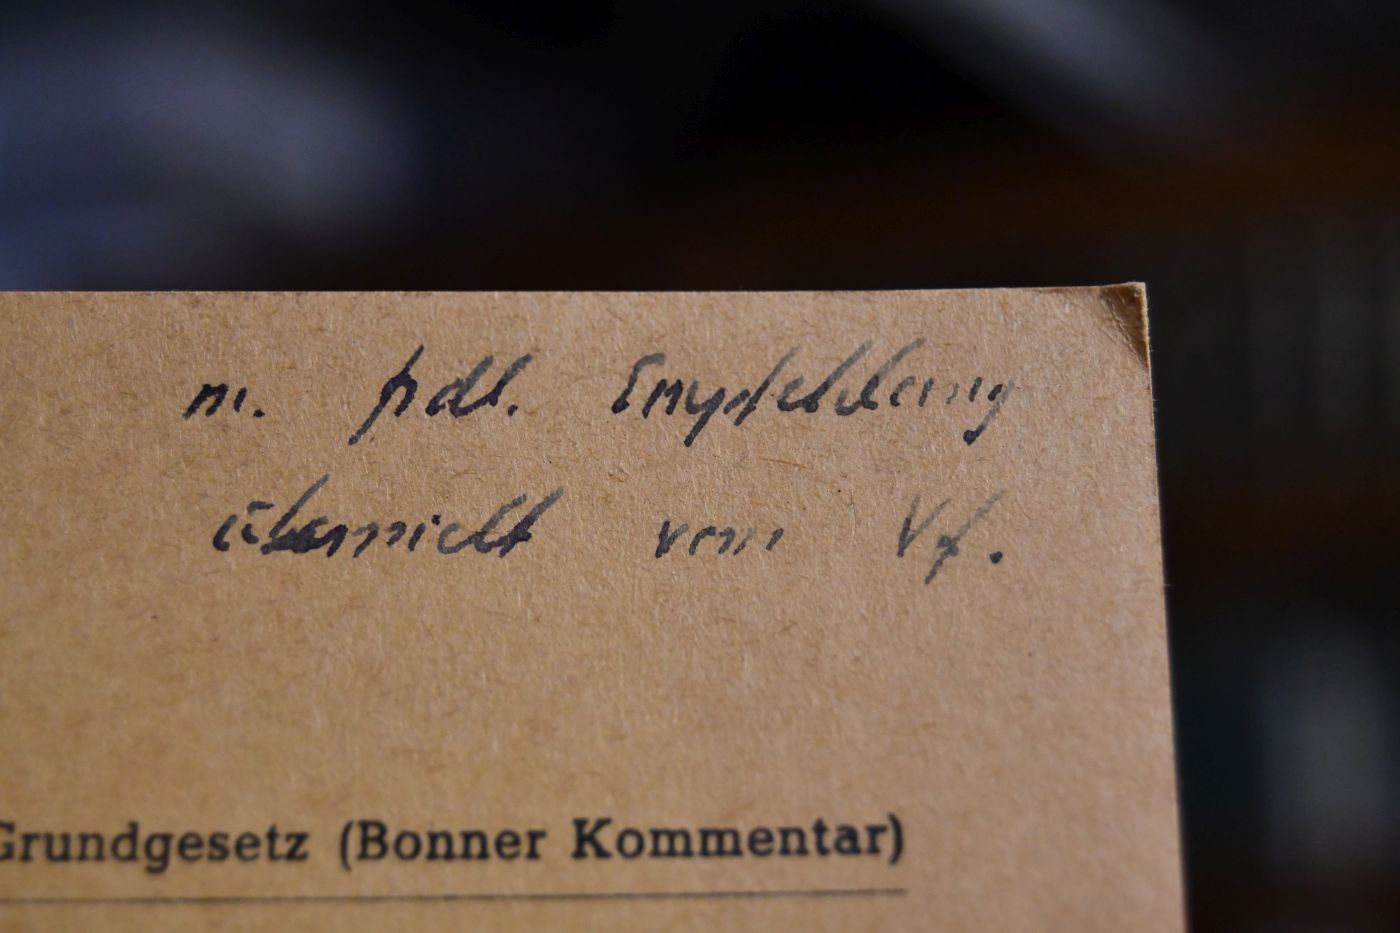 m. frdl. Empfehlung
überreicht vom Vf.
Grundgesetz (Bonner Kommentar)